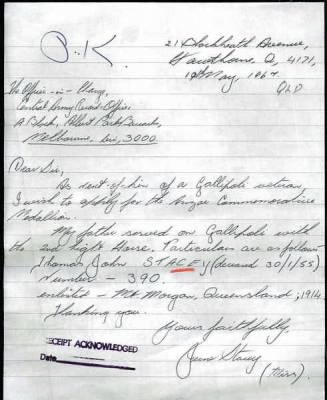 P.K.
21 Blackheath Avenue,
Hawthorne, Q, 4171,
19 May, 1967
QLD
The Officer-in-Charge,
Central Army Records Office,
A Block, Albert Park Barracks,
Melbourne, Vic, 3000
Dear Sir,
As next-of-kin of a Gallipoli veteran,
I wish to apply for the Anzac Commemorative
Medallion.
My father served on Gallipoli with
the 2nd Light Horse. Particulars are as follows
Thomas John STACEY (deceased 30/1/55)
Number - 390
enlisted - Mt Morgan, Queensland; 1914
Thanking you.
Yours faithfully,
June Stacey
(Miss)
RECEIPT ACKNOWLEDGED
Date